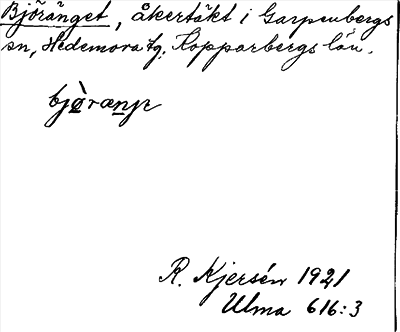 Björänget, åkertäkt i Garpenbergs
sn, Hedemora tg. Kopparbergs län.
R. Kjersén 1921
Ulma 616:3